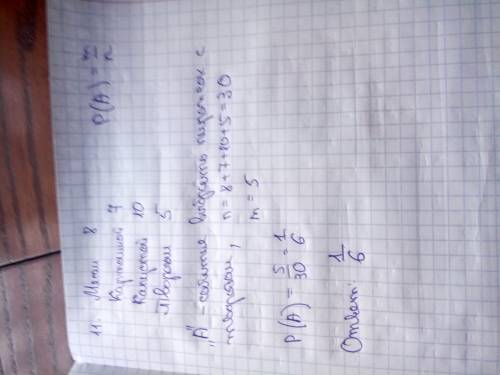 11. Мясом 8
Картошкой 7 P(A) = m/n
Капустой 10
Творогом 5
"А" - событие выбрать пирожок с
творогом, n = 8+7+10+5=30
m = 5
P(A) = 5/30 = 1/6
Ответ: 1/6